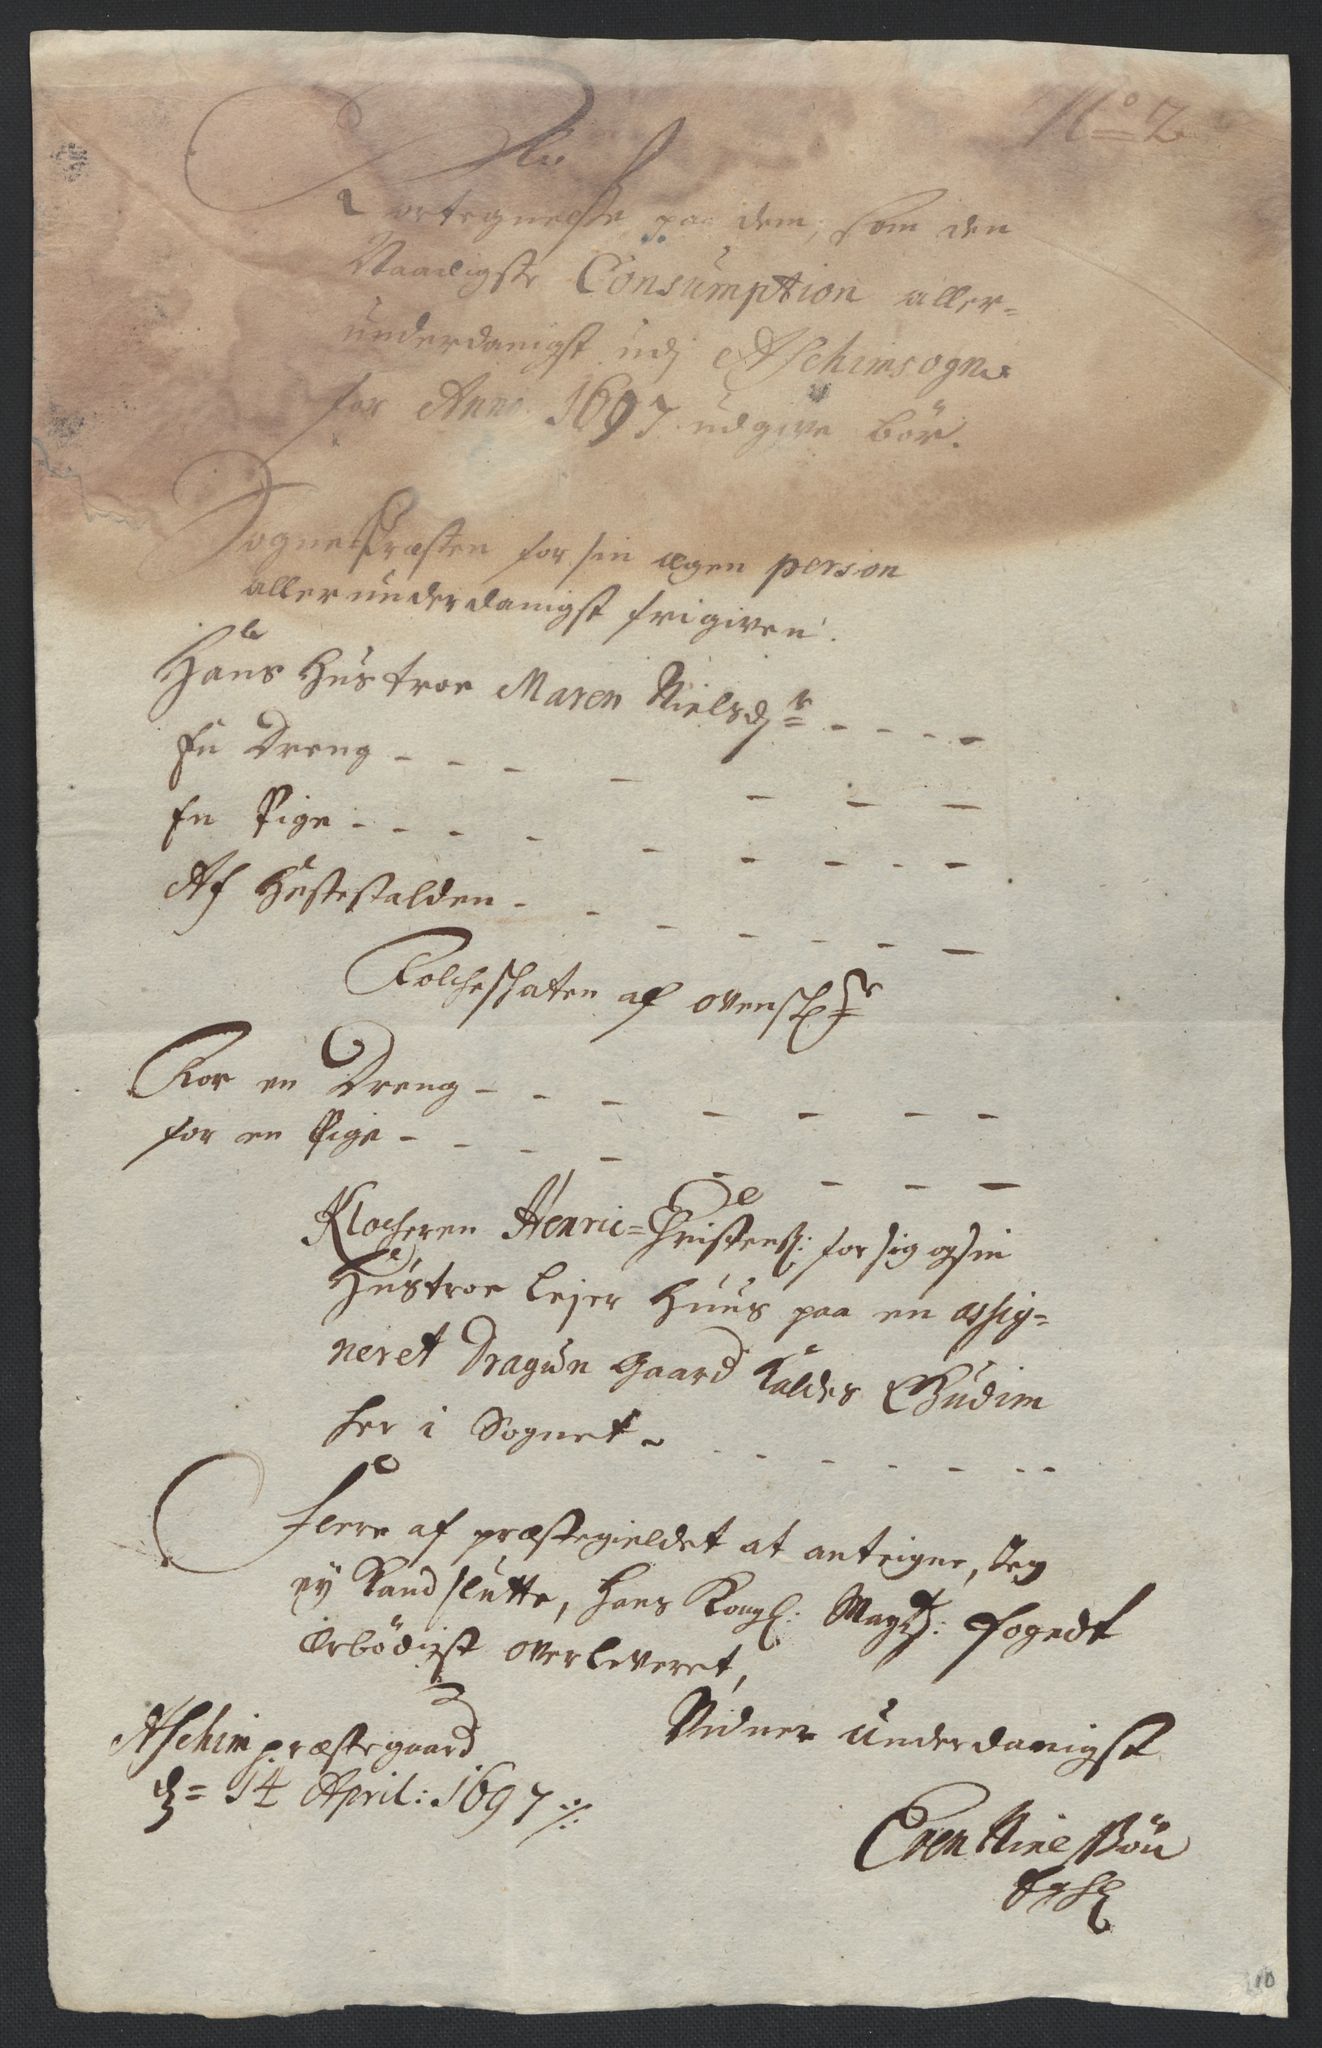 No 2
En
Fortegnelse paa dem, som den
Naadigste Consumption aller=
underdanigst udj Aschimsogne
for Anno 1697 udgive bör.
SognePræsten for sin egen person
allerunderdanigst frigiven.
Hans Hustroe Maren Nielsdr - - - -
En Dreng - - - - - - -
En Pige - - - - - - - - -
Af Hestestalden - - - - - - -
Folcheskaten af ovenschr
For en Dreng - - - - - - -
for en Pige - - - - - - - -
Klocheren Henric=Christens: for sig og sin
Hustroe lejer Huus paa en assig=
neret Dragun Gaard kaldes Gudim
her i Sognet - - - - - - -
Flere af præstegieldet at anteigne, Jeg
ey kand slutte, Hans Kongl: Mayts: fogedt
Ærbödigst overleveret,
Vidner underdanigst
Aschim præstegaard
d= 14 April: 1697 ·/·
Even Nielssön
10